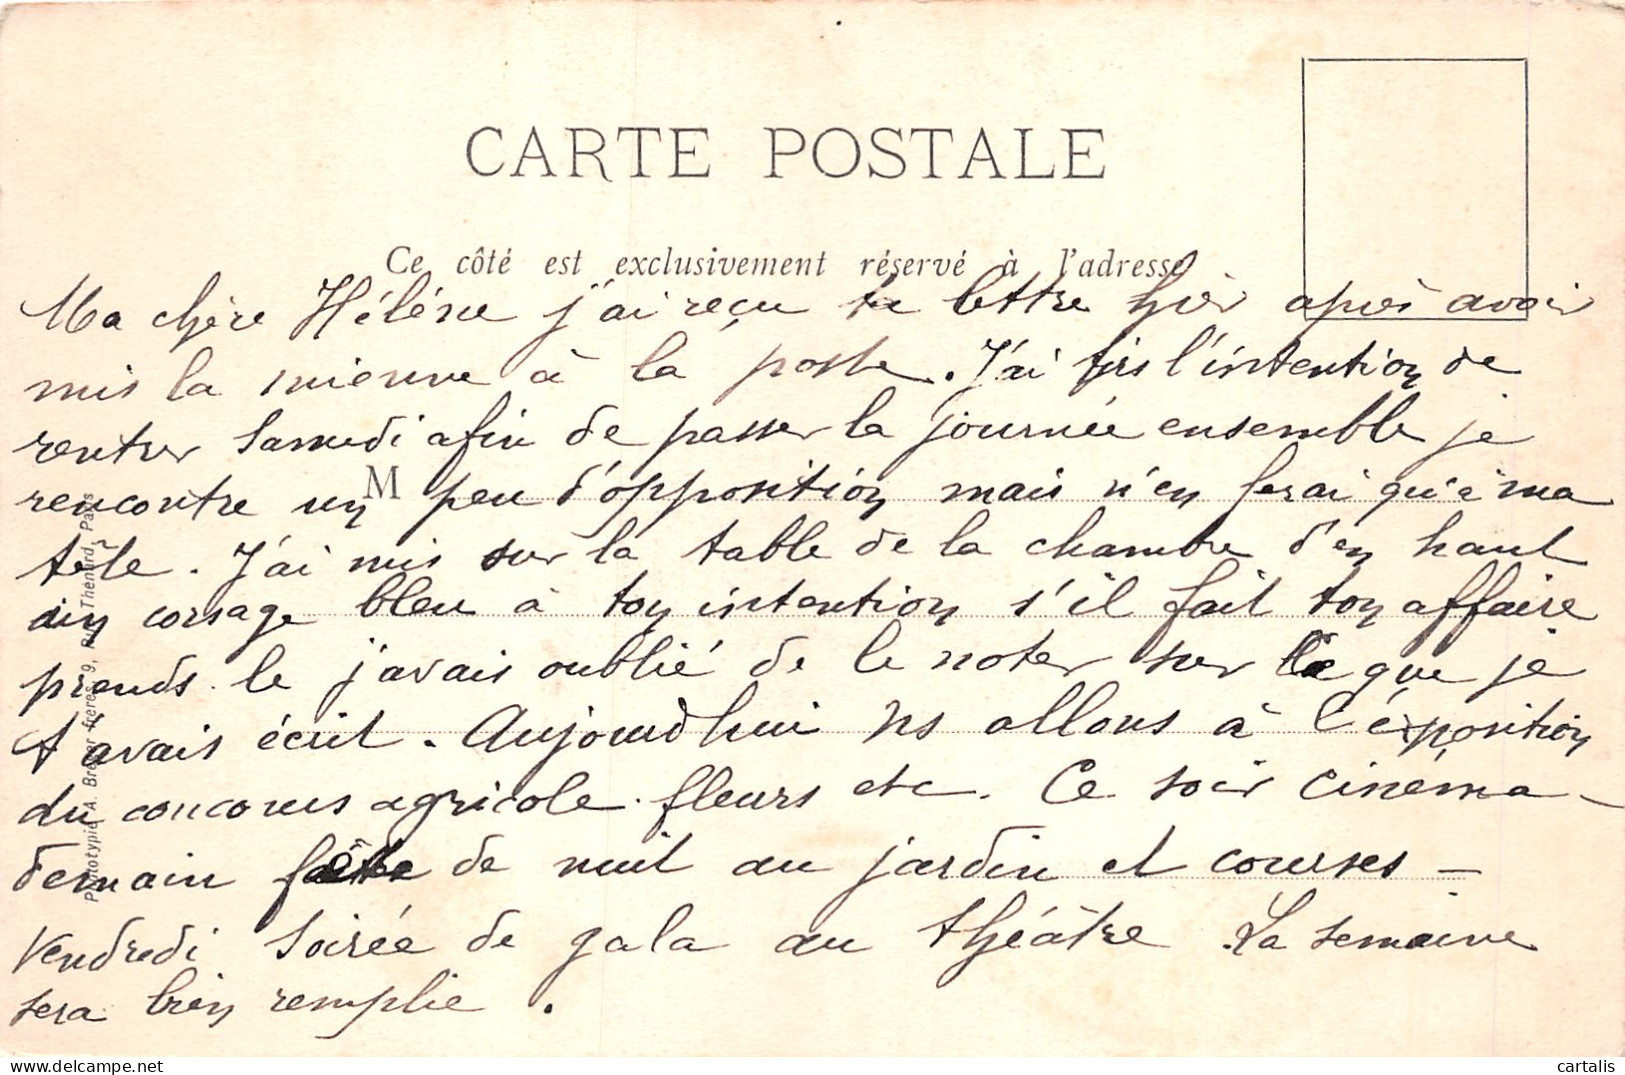 CARTE POSTALE
Ce côté est exclusivement réservé à l'adresse
Ma chère Hélène j'ai reçu ta lettre hier après avoir
mis la mienne à la poste. J'ai tjrs l'intention de
rentrer Samedi afin de passer la journée ensemble je
rencontre un peu d'opposition mais n'en ferai qu'à ma
tête. J'ai mis sur la table de la chambre d'en haut
un corsage bleu à ton intention s'il fait ton affaire
prends le j'avais oublié de le noter sur ce que je
t'avais écrit. Aujourd'hui ns allons à l'éxposition
du concours agricole fleurs etc. Ce soir cinéma -
demain fête de nuit au jardin et courses -
Vendredi Soirée de gala au théâtre La semaine
sera bien remplie.
M
Phototypie A. Breger frères, 9, Rue Thénard, Paris
cartalis